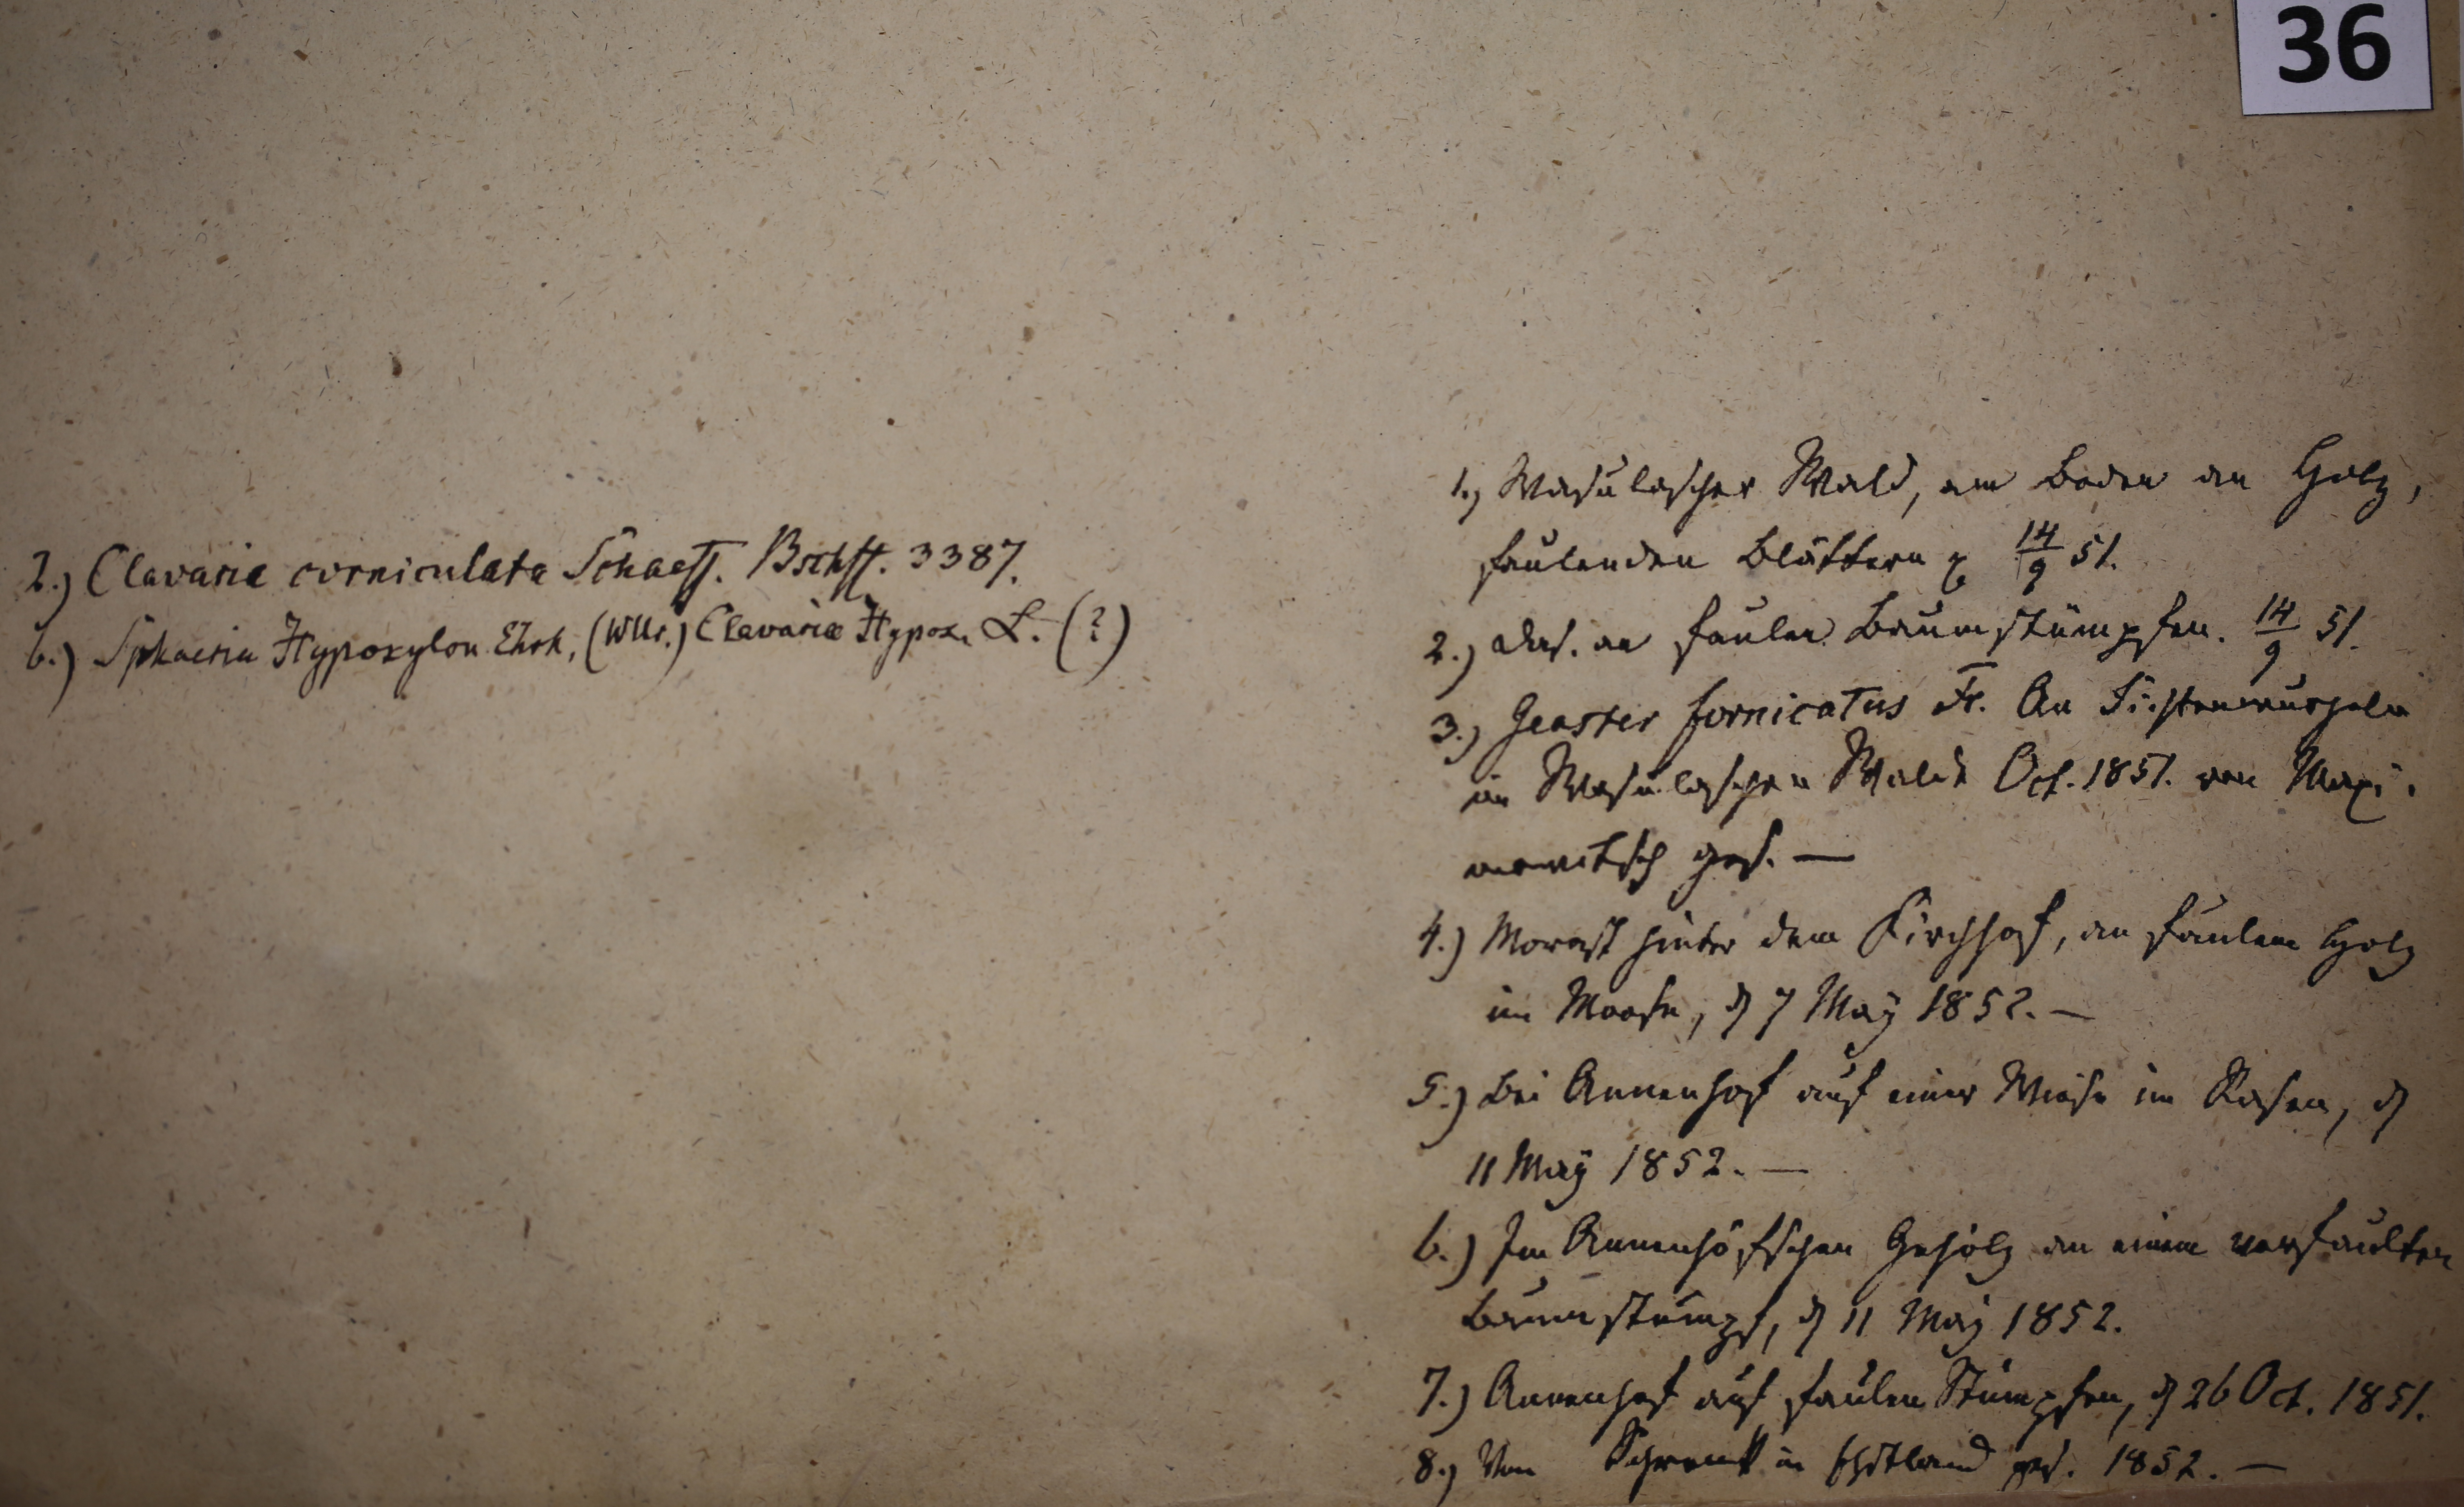 36
2.) Clavaria corniculata Schaeff. Bschff. 3387.
6.) Sphaeria Hypoxylon Ehrh, (Wllr.) Clavaria Hypox. L. (?)
1.) Wasulascher Wald, am Boden an Holz,
faulenden Blättern 14/9 51.
2.) das. an faulen Baumstümpfen. 14/9 51.
3.) Geaster fornicatus Fr. An Fichtenwurzeln
im Wasulaschen Walde Oct. 1851. von Maxi-
mowitsch ges. —
4.) Morast hinter dem Kirchhof, an faulem Holz
im Moose, d 7 May 1852. —
5.) Bei Annenhof auf einer Wiese im Rasen, d
11 May 1852. —
6.) Im Annenhöfschen Gehölz an einem verfaulten
Baumstumpf, d 11 May 1852.
7.) Annenhof auf faulen Stümpfen, d 26 Oct. 1851.
8.) Von Schrenk in Ehstland ges. 1852. —